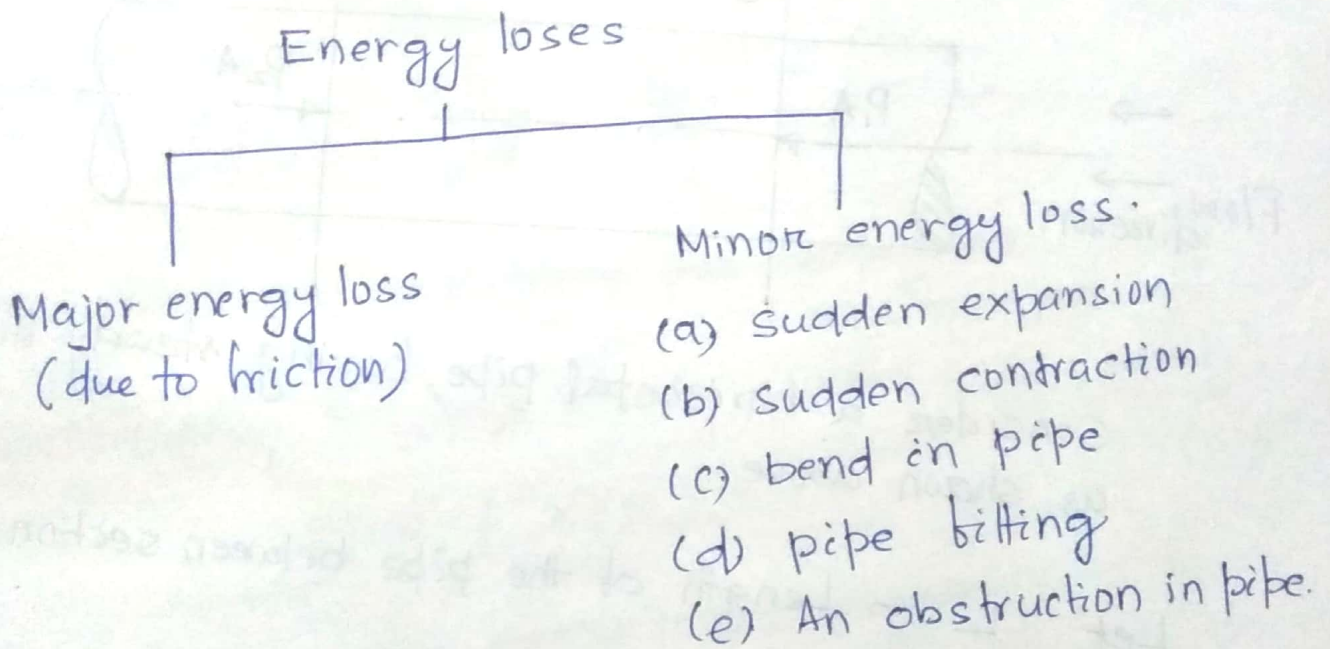 Energy loses
Major energy loss
(due to friction)
Minor energy loss.
(a) sudden expansion
(b) sudden contraction
(c) bend in pipe
(d) pipe fitting
(e) An obstruction in pipe.